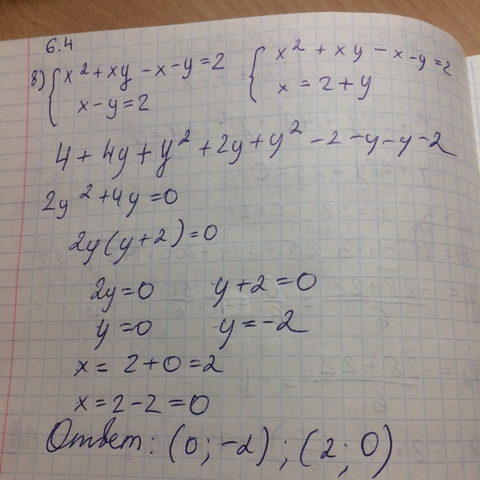 6.4
8) { x² + xy - x - y = 2 { x² + xy - x - y = 2
x - y = 2 x = 2 + y
4 + 4y + y² + 2y + y² - 2 - y - y - 2
2y² + 4y = 0
2y(y + 2) = 0
2y = 0 y + 2 = 0
y = 0 y = -2
x = 2 + 0 = 2
x = 2 - 2 = 0
Ответ: (0; -2); (2; 0)